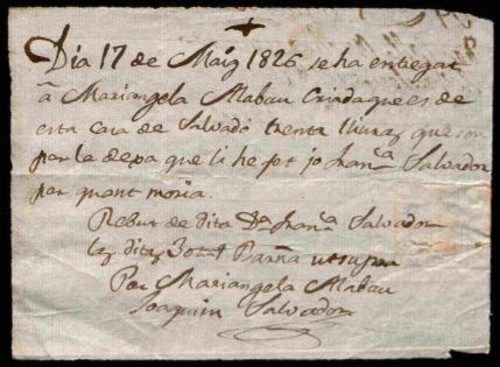 Dia 17 de Maig 1826 se ha entregat
à Mariangela Alabau Criada que es de
esta casa de Salvadó trenta lliuras que son
per la dexa que li he fet jo Fran.ca Salvador
per quant moria.
Rebut de dita D.a Fran.ca Salvador
las ditas 30 Barña ut supra
Por Mariangela Alabau
Joaquim Salvador